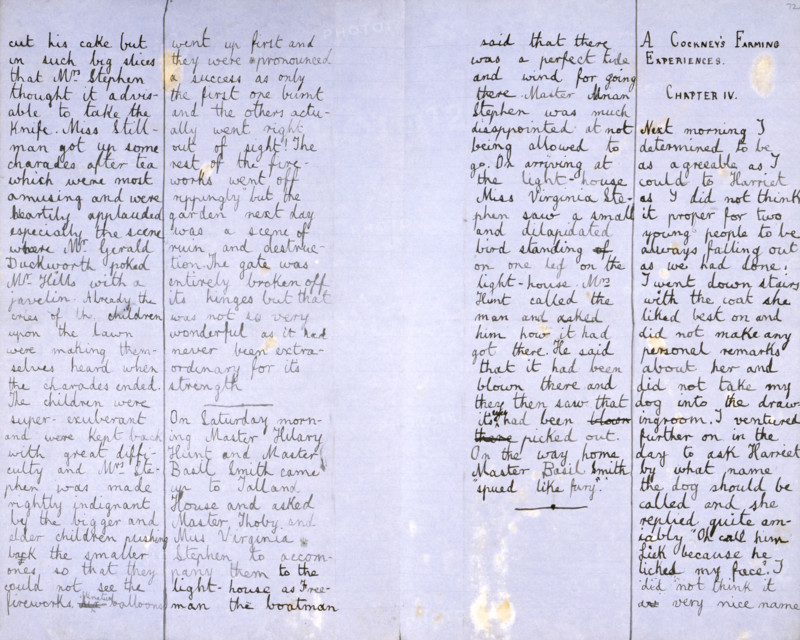 cut his cake but
in such big slices
that Mrs Stephen
thought it advis-
able to take the
Knife. Miss Still-
man got up some
charades after tea
which were most
amusing and were
heartily applauded
especially the scene
where Mr Gerald
Duckworth poked
Mr Hills with a
javelin. Already the
cries of the children
upon the lawn
were making them-
selves heard when
the charades ended.
The children were
super-exuberant
and were kept back
with great diffi-
culty and Mrs Ste-
phen was made
rightly indignant
by the bigger and
elder children pushing
back the smaller
ones, so that they
could not see the
fireworks. balloons
went up first and
they were pronounced
a success as only
the first one burnt
and the others actu-
ally went right
out of sight! The
rest of the fire-
works went off
rippingly but the
garden next day
was a scene of
ruin and destruc-
tion. The gate was
entirely broken off
its hinges but that
was not so very
wonderful as it had
never been extra-
ordinary for its
strength
On Saturday morn-
ing Master Hilary
Hunt and Master
Basil Smith came
up to Talland
House and asked
Master Thoby and
Miss Virginia
Stephen to accom-
pany them to the
light-house as Free-
man the boatman
said that there
was a perfect tide
and wind for going
there. Master Adrian
Stephen was much
disappointed at not
being allowed to
go. On arriving at
the light-house
Miss Virginia Ste-
phen saw a small
and dilapidated
bird standing of
on one leg on the
light-house. Mrs
Hunt called the
man and asked
him how it had
got there. He said
that it had been
blown there and
they then saw that
its eyes had been blown
there picked out.
On the way home
Master Basil Smith
"spued like fury".
72
A COCKNEY'S FARMING
EXPERIENCES.
CHAPTER IV.
Next morning I
determined to be
as agreeable as I
could to Harriet
as I did not think
it proper for two
young people to be
always falling out
as we had done.
I went down stairs
with the coat she
liked best on and
did not make any
personal remarks
about her and
did not take my
dog into the draw-
ingroom. I ventured
further on in the
day to ask Harriet
by what name
the dog should be
called and she
replied quite am-
iably "Oh call him
Lick because he
licked my face". I
did not think it
a very nice name